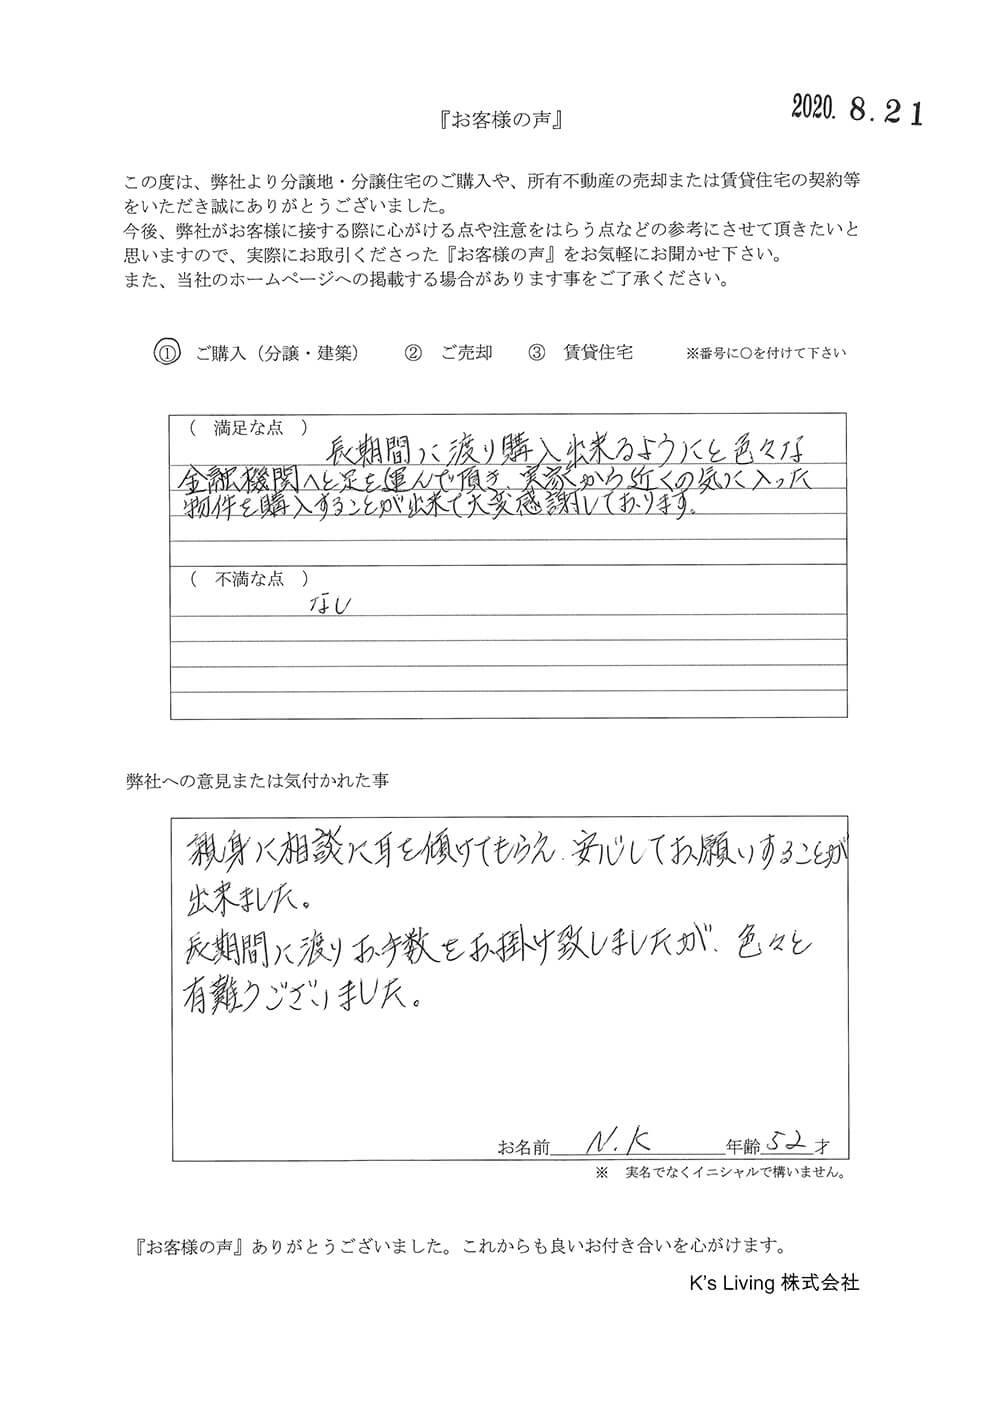 2020. 8. 21
『お客様の声』
この度は、弊社より分譲地・分譲住宅のご購入や、所有不動産の売却または賃貸住宅の契約等
をいただき誠にありがとうございました。
今後、弊社がお客様に接する際に心がける点や注意をはらう点などの参考にさせて頂きたいと
思いますので、実際にお取引くださった『お客様の声』をお気軽にお聞かせ下さい。
また、当社のホームページへの掲載する場合があります事をご了承ください。
① ご購入（分譲・建築） ② ご売却 ③ 賃貸住宅 ※番号に〇を付けて下さい
（ 満足な点 ）
長期間に渡り購入出来るようにと色々な
金融機関へと足を運んで頂き、実家から近くの気に入った
物件を購入することが出来て大変感謝しております。
（ 不満な点 ）
なし
弊社への意見または気付かれた事
親身に相談に耳を傾けてもらえ、安心してお願いすることが
出来ました。
長期間に渡りお手数をお掛け致しましたが、色々と
有難うございました。
お名前 N.K 年齢 52 才
※ 実名でなくイニシャルで構いません。
『お客様の声』ありがとうございました。これからも良いお付き合いを心がけます。
K's Living 株式会社